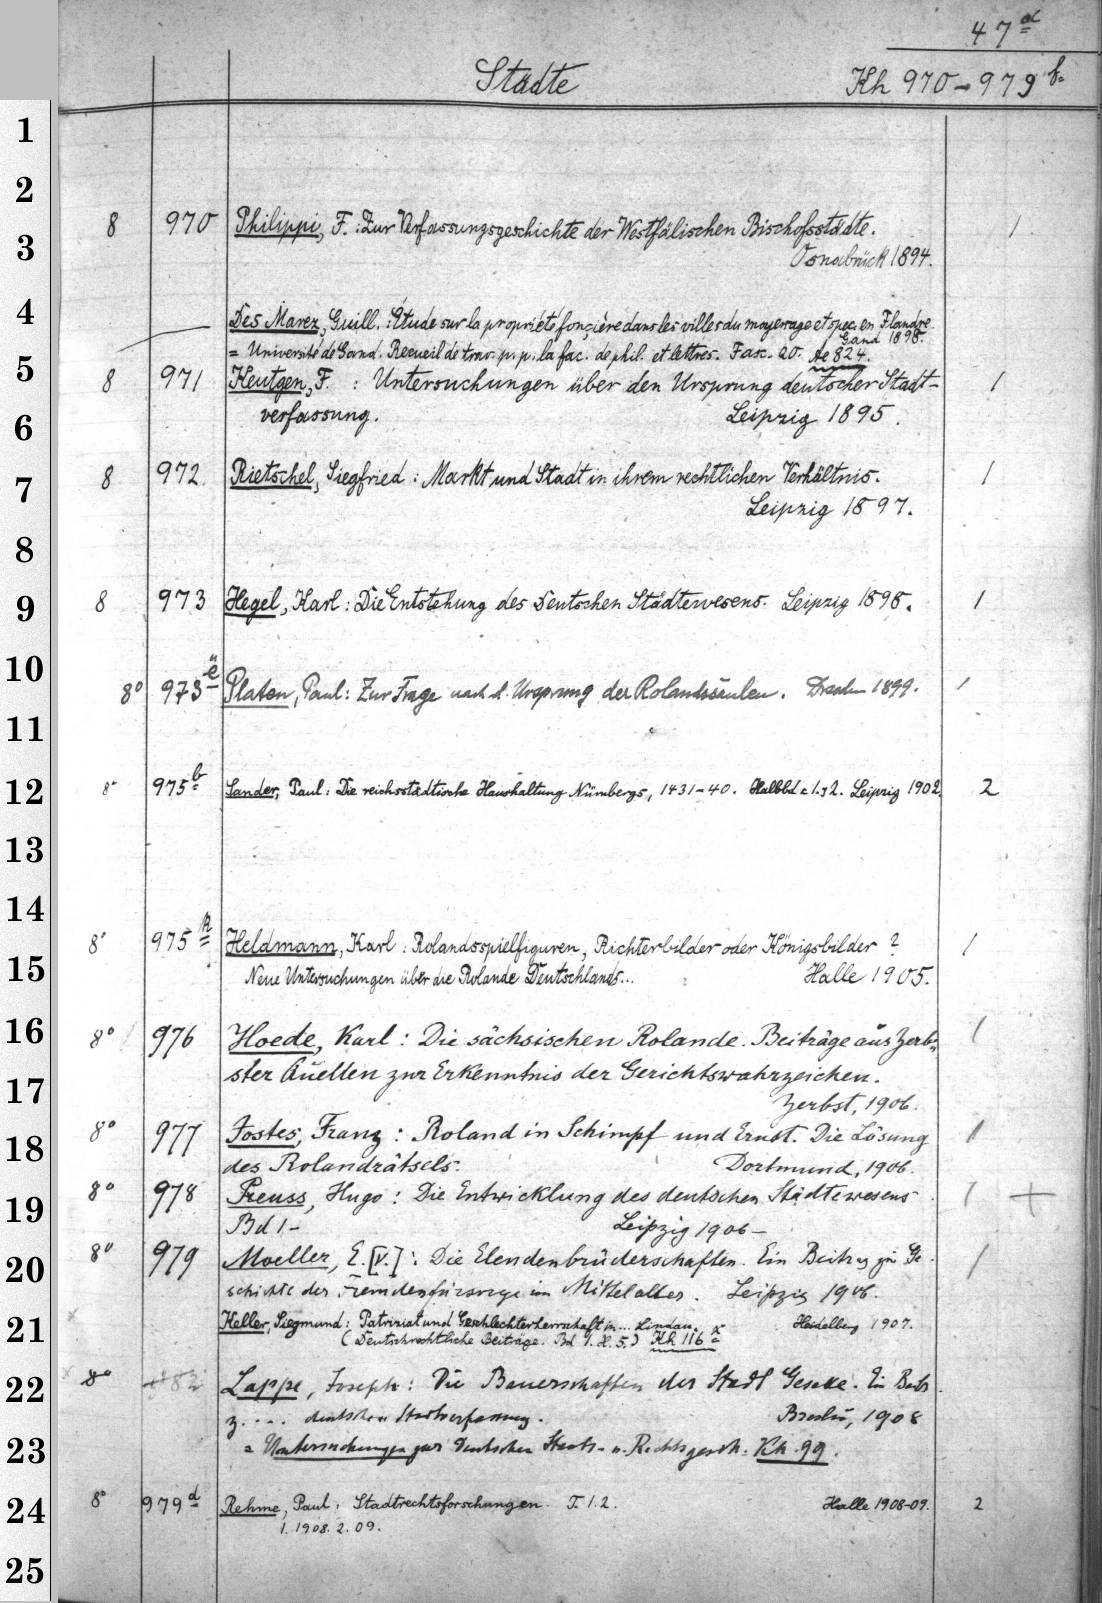 47d
Städte Kh 970-979 f.
1
2
8 970 Philippi, F.: Zur Verfassungsgeschichte der Westfälischen Bischofsstädte. 1
3
Osnabrück 1894.
4
Des Marez, Guill.: Étude sur la propriété foncière dans les villes du moyen age et spec. en Flandre.
Gand 1898.
= Université de Gand. Recueil de trav. p. p. la fac. de phil. et lettres. Fasc. 20. Ae 824.
5
8 971 Keutgen, F. : Untersuchungen über den Ursprung deutscher Stadt- 1
verfassung. Leipzig 1895.
6
8 972 Rietschel, Siegfried : Markt und Stadt in ihrem rechtlichen Verhältnis. 1
7
Leipzig 1897.
8
8 973 Hegel, Karl: Die Entstehung des Deutschen Städtewesens. Leipzig 1898. 1
9
10
8° 973 Platen, Paul: Zur Frage nach d. Ursprung der Rolandssäulen. Dresden 1899. 1
11
8° 975b Sander, Paul: Die reichsstädtische Haushaltung Nürnbergs, 1431-40. Halbbd 1. 2. Leipzig 1902. 2
12
13
14
8° 975k Heldmann, Karl: Rolandsspielfiguren, Richterbilder oder Königsbilder? 1
15
Neue Untersuchungen über die Rolande Deutschlands... Halle 1905.
16
8° 976 Hoede, Karl: Die sächsischen Rolande. Beiträge aus Zerb- 1
ster Quellen zur Erkenntnis der Gerichtswahrzeichen.
17
Zerbst, 1906.
8° 977 Jostes, Franz: Roland in Schimpf und Ernst. Die Lösung 1
18
des Rolandrätsels. Dortmund, 1906.
8° 978 Preuss, Hugo: Die Entwicklung des deutschen Städtewesens 1 +
19
Bd 1- Leipzig 1906-
8° 979 Moeller, E. [v.]: Die Elendenbrüderschaften. Ein Beitrag zur Ge- 1
20
schichte der Fremdenfürsorge im Mittelalter. Leipzig 1906.
Keller, Siegmund: Patriziat und Geschlechterherrschaft in... Lindau. Heidelberg 1907.
21
(Deutschrechtliche Beiträge. Bd 1. H. 5.) Kh 116x
8° Lappe, Joseph: Die Bauerschaften der Stadt Geseke. Ein Beitr.
22
z. .... deutschen Stadtverfassung. Breslau, 1908
= Untersuchungen zur Deutschen Staats- u. Rechtsgesch. Kh 99.
23
8° 979d Rehme, Paul: Stadtrechtsforschungen. T. 1.2. Halle 1908-09. 2
24
1. 1908. 2. 09.
25